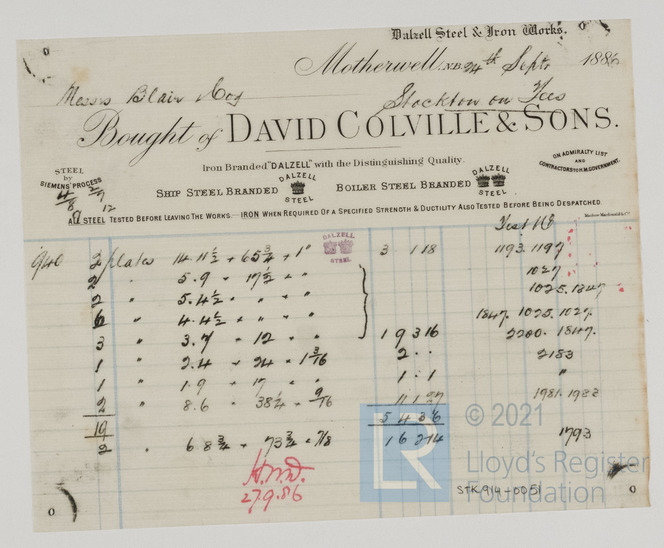 Dalzell Steel & Iron Works.
Motherwell, N.B. 24th Sept. 1886
Messrs Blair & Coy
Stockton on Tees
Bought of DAVID COLVILLE & SONS.
Iron Branded "DALZELL" with the Distinguishing Quality.
STEEL by SIEMENS' PROCESS
SHIP STEEL BRANDED DALZELL STEEL BOILER STEEL BRANDED DALZELL STEEL
ON ADMIRALTY LIST AND CONTRACTORS TO H.M. GOVERNMENT.
12
ALL STEEL TESTED BEFORE LEAVING THE WORKS.—IRON WHEN REQUIRED OF A SPECIFIED STRENGTH & DUCTILITY ALSO TESTED BEFORE BEING DESPATCHED.
Test No
DALZELL STEEL
940 2 plates 14.11½ + 65¾ + 1" 3 1 18 1193.1197
2 " 5.9 " 17½ " " 1027
2 " 5.4½ " " " " 1025.1847
6 " 4.4½ " " " " 1847. 1025. 1027
3 " 3.7 " 12 " " 1 9 3 16 2200. 1847.
1 " 2.4 " 24 " 1 3/16 2 " " 2183
1 " 1.9 " 17 " " 1 " 1 "
2 " 8.6 " 38¼ " 9/16 11 1 27 1981.1982
5 4 3 6
19
2 " 6.8¾ " 73¾ " 7/8 16 2 14 1793
27.9.86
LR
© 2021
Lloyd's Register
Foundation
STK914-0051